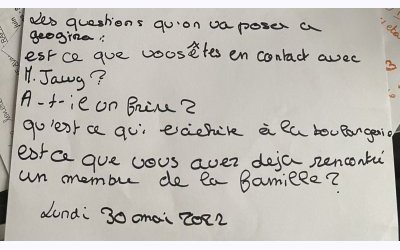 Les questions qu'on va poser a
georgina :
est ce que vous êtes en contact avec
M. Jawy ?
A-t-il un frère ?
qu'est ce qui à la boulangerie
est ce que vous avez deja rencontré
un membre de la famille ?
Lundi 30 mai 2022